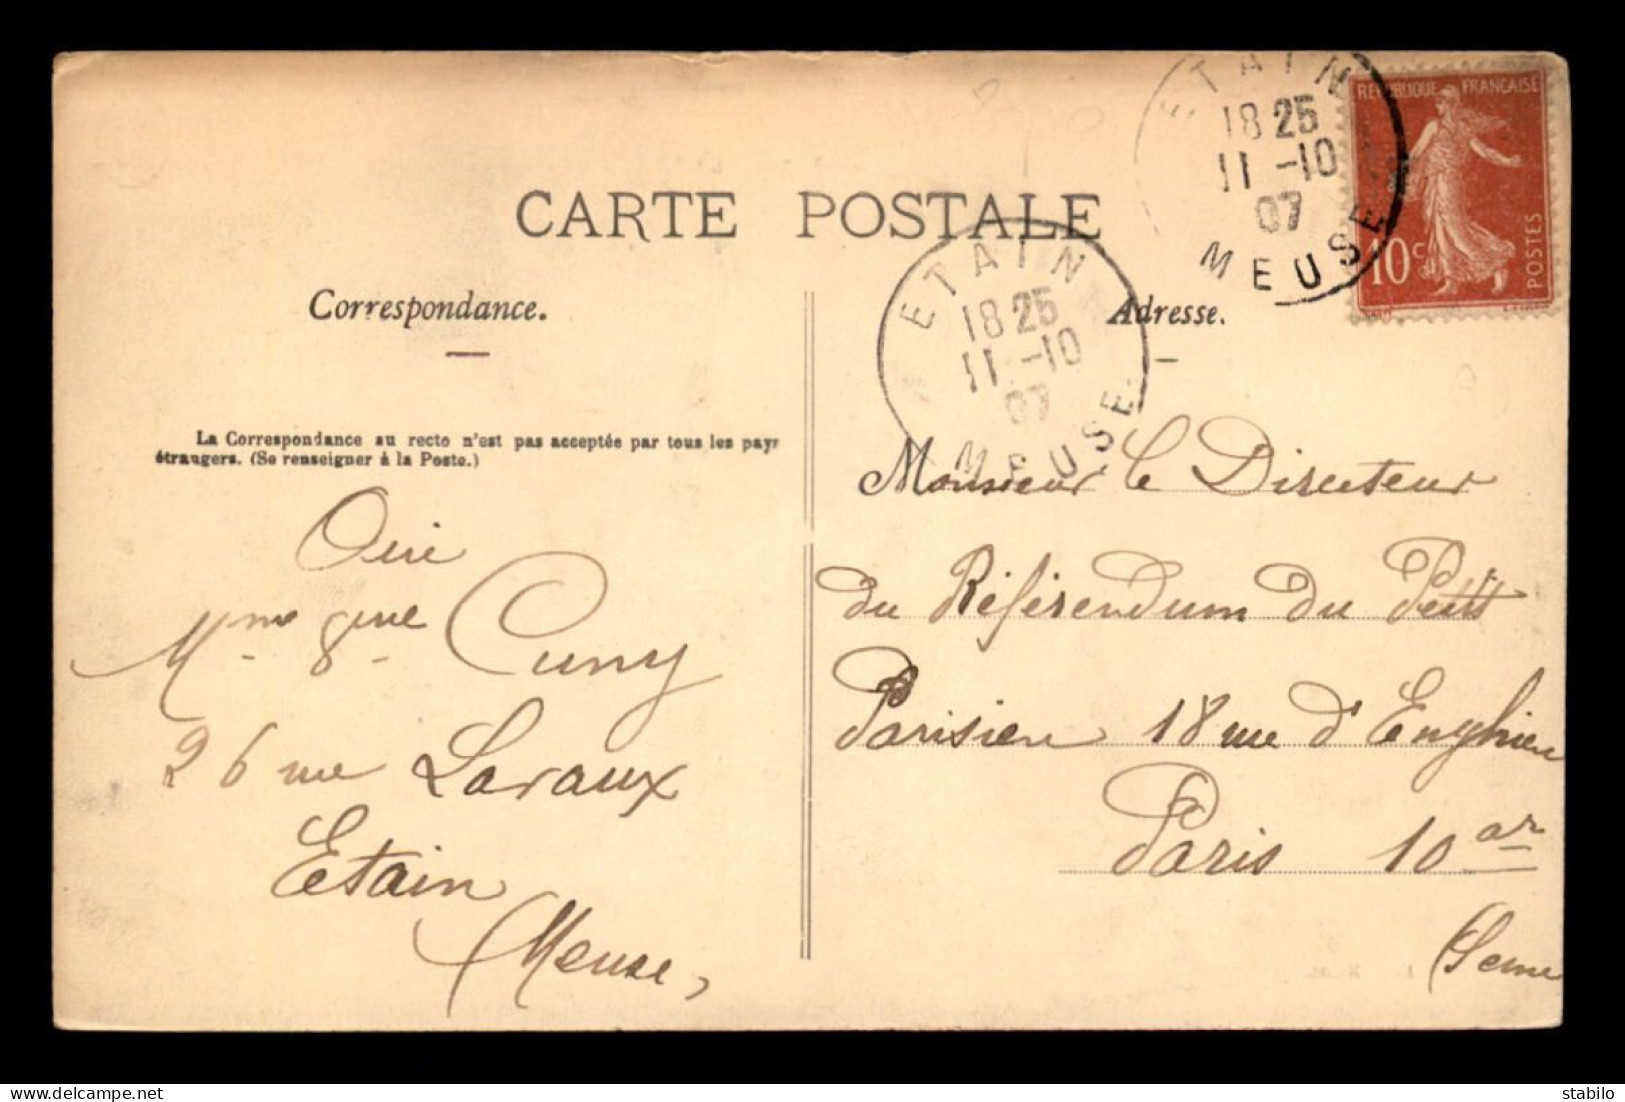 CARTE POSTALE
Correspondance.
Adresse.
La Correspondance au recto n'est pas acceptée par tous les pays
étrangers. (Se renseigner à la Poste.)
Oui
Mme Cuny
26 rue Laraux
Etain
(Meuse,
Monsieur le Directeur
du Référendum du Petit
Parisien 18 rue d'Enghien
Paris 10 ar
(Seine
ETAIN
18 25
11 -10
07
MEUSE
ETAIN
18 25
11 -10
07
MEUSE
REPUBLIQUE FRANÇAISE
10c
POSTES
stabilo